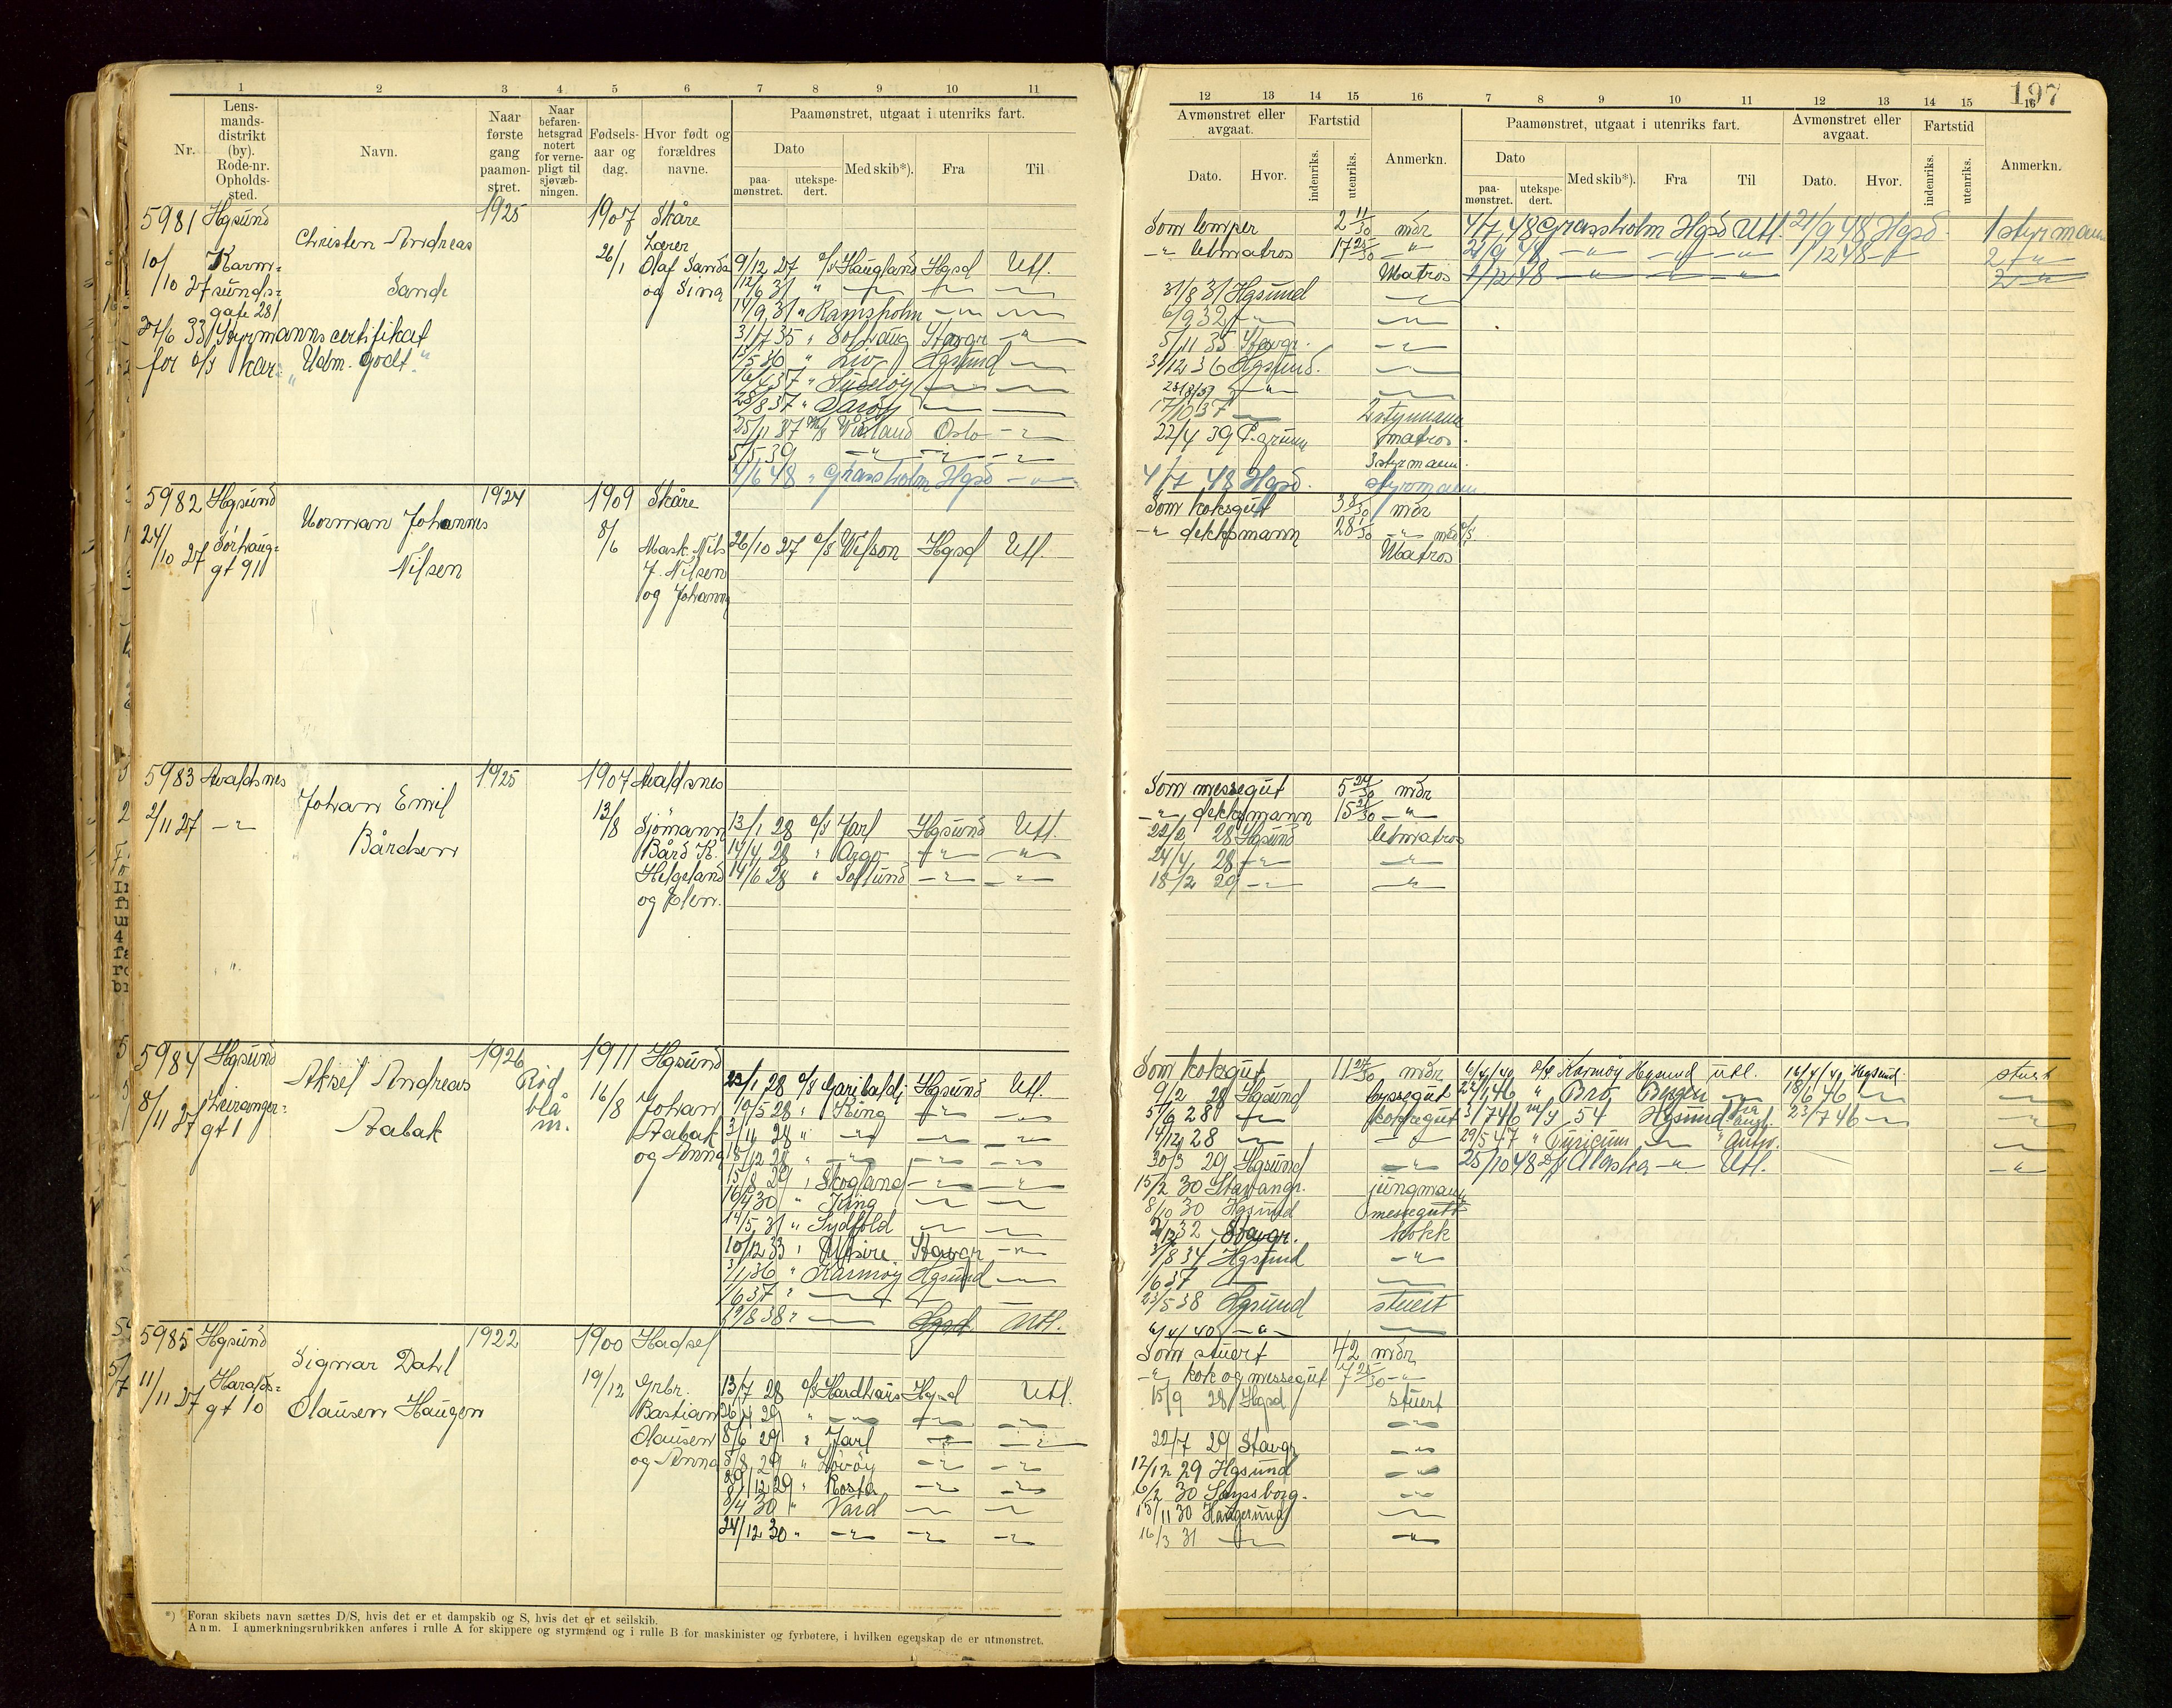 1 2 3 4 5 6 7 8 9 10 11
Nr. Lens-mands-distrikt (by). Rode-nr. Opholds-sted. Navn. Naar første gang paamøn-stret. Naar befaren-hetsgrad notert for verne-pligt til sjøvæb-ningen. Fødsels-aar og dag. Hvor født og forældres navne. Paamønstret, utgaat i utenriks fart.
Dato Med skib*). Fra Til
paa-mønstret. utekspe-dert.
5981 Hgsund 1925 1907 Skåre
Christen Andreas Lærer
10/10 27 Karm- 26/1 Olaf Sande 9/12 27 Haugland Hgsd Utl.
sunds- Sande og Sina
gate 281 14/9 31 " Ramsholm
27/6 33 Styrmannscertifikat 31/7 35 " Solhaug Stavgr.
Udm. godt " 36 " Hgsund
28/8 37 "
25/11 37 M/S Oslo
5/5 39
4/6 48 " Grassholm Hgsd
5982 Hgsund 1924 1909 Skåre
Norman Johannes
24/10 27 Sörhaug- 8/6 Mask. Nils 26/10 27 Wilson Hgsd Utl.
gt 91 Nilsen J. Nilsen
og Johanna
5983 Avaldsnes 1925 1907 Avaldsnes
Johan Emil
2/11 27 13/8 Sjömann 13/1 28 Jarl Hgsund Utl.
Bårdsen Bård K. 14/4 28 " Argo
Helgeland 14/6 28 " Solsund
og Elen.
5984 Hgsund 1926 1911 Hgsund
Aksel Andreas Rød 23/1 28 Garibaldi Hgsund Utl.
8/11 27 blå 16/8 Johan 10/5 28 " Ring
gt 1 Aabak m. Aabak 28 "
og Anna 18/12 28 "
15/8 29 " Skogland
16/4 30 " Ring
14/5 31 " Sydfold
10/12 33 " Utsire Stavgr.
3/1 36 " Karmøy Hgsund
1/6 37 "
19/8 38 " Hgsd. Utl.
5985 Hgsund 1922 1900 Hadsel
Sigwar Dahl
11/11 27 Haralds- 19/12 Grbr. 13/7 28 Hgsd Utl.
gt 10 Olausen Haugen Bastian 26/4 29 "
Olausen 8/6 29 " Jarl
og Anna 5/8 29 " Lövöy
29/12 29 " Rosta
8/4 30 " Vard
24/12 30 "
*) Foran skibets navn sættes D/S, hvis det er et dampskib og S, hvis det er et seilskib.
Anm. I anmerkningsrubrikken anføres i rulle A for skippere og styrmænd og i rulle B for maskinister og fyrbøtere, i hvilken egenskap de er utmønstret.
197
12 13 14 15 16 7 8 9 10 11 12 13 14 15 16
Avmønstret eller avgaat. Fartstid Anmerkn. Paamønstret, utgaat i utenriks fart. Avmønstret eller avgaat. Fartstid Anmerkn.
Dato. Hvor. indenriks. utenriks. Dato Med skib*). Fra Til Dato. Hvor. indenriks. utenriks.
paa-mønstret. utekspe-dert.
Som lemper 2 11/30 mdr 4/7 48 Grassholm Hgsd Utl. 21/9 48 Hgsd. 1 styrmann
-"- letmatros 17 25/30 -"- 21/9 48 1/12 48 2 -"-
Matros 1/12 48 2 -"-
31/8 31 Hgsund
6/9 32
5/11 35 Stavgr.
31/12 36 Hgsund.
28/8 37
17/10 37 2 styrmann
22/4 39 P.grunn matros.
3 styrmann.
4/7 48 Hgsd. styrmann
Som koksgut 3 8/30 mdr
-"- dekksmann 28 1/30
Matros
Som messegut 5 24/30 mdr
-"- dekksmann 15 21/30 -"-
22/2 28 Hgsund letmatros
24/4 28
18/2 29
Som koksgut 11 27/30 mdr 6/4 40 Karmøy Hgsund utl. 16/4 40 Hgsund. stuert
9/2 28 Hgsund byssegut 46 " Bro Bergen 18/6 46
5/6 28 koksgut 3/7 46 M/S 54 Hgsund 23/7 46
14/12 28 29/5 47 " Turicum " Antw.
30/3 29 Hgsund 25/10 48 Alaska Utl.
15/2 30 Stavangr. jungmann
8/10 30 Hgsund messegutt
2/12 32 Stavgr. kokk
3/8 34 Hgsund
1/6 37
23/5 38 Hgsund stuert
6/4 40
Som stuert 42 mdr
-"- kok og messegut 7 25/30 -"-
15/9 28 Hgsd stuert
22/7 29 Stavgr
12/12 29 Hgsund
6/2 30 Sarpsborg.
15/11 30 Haugesund
16/3 31